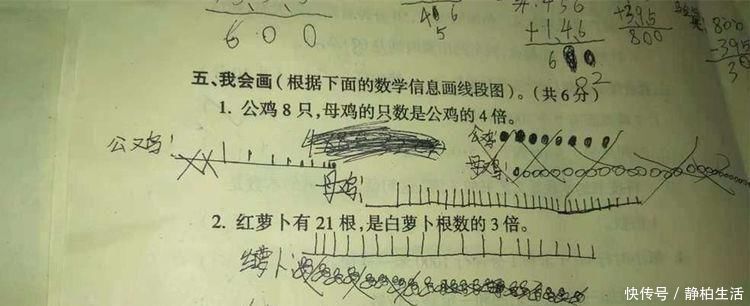 6 0 0
4 5 6
5
+1.46
6
+395
800
800
-395
3
82
五、我会画（根据下面的数学信息画线段图）。（共6分）
1. 公鸡8只，母鸡的只数是公鸡的4倍。
公鸡：
公鸡：
母鸡：
母鸡：
2. 红萝卜有21根，是白萝卜根数的3倍。
红萝卜：
快传号／静柏生活